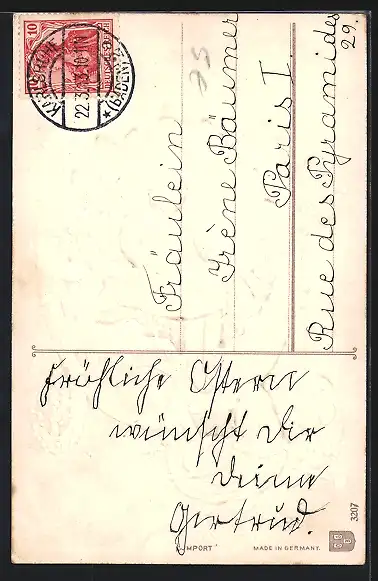 10
KARLSRUHE
22.3.13.10-11N
* (BADEN) *
25
Fräulein
Irène Bäumer
Paris I
Rue des Pyramides
29.
Fröhliche Ostern
wünscht Dir
Deine
Gertrud.
IMPORT
MADE IN GERMANY.
3207